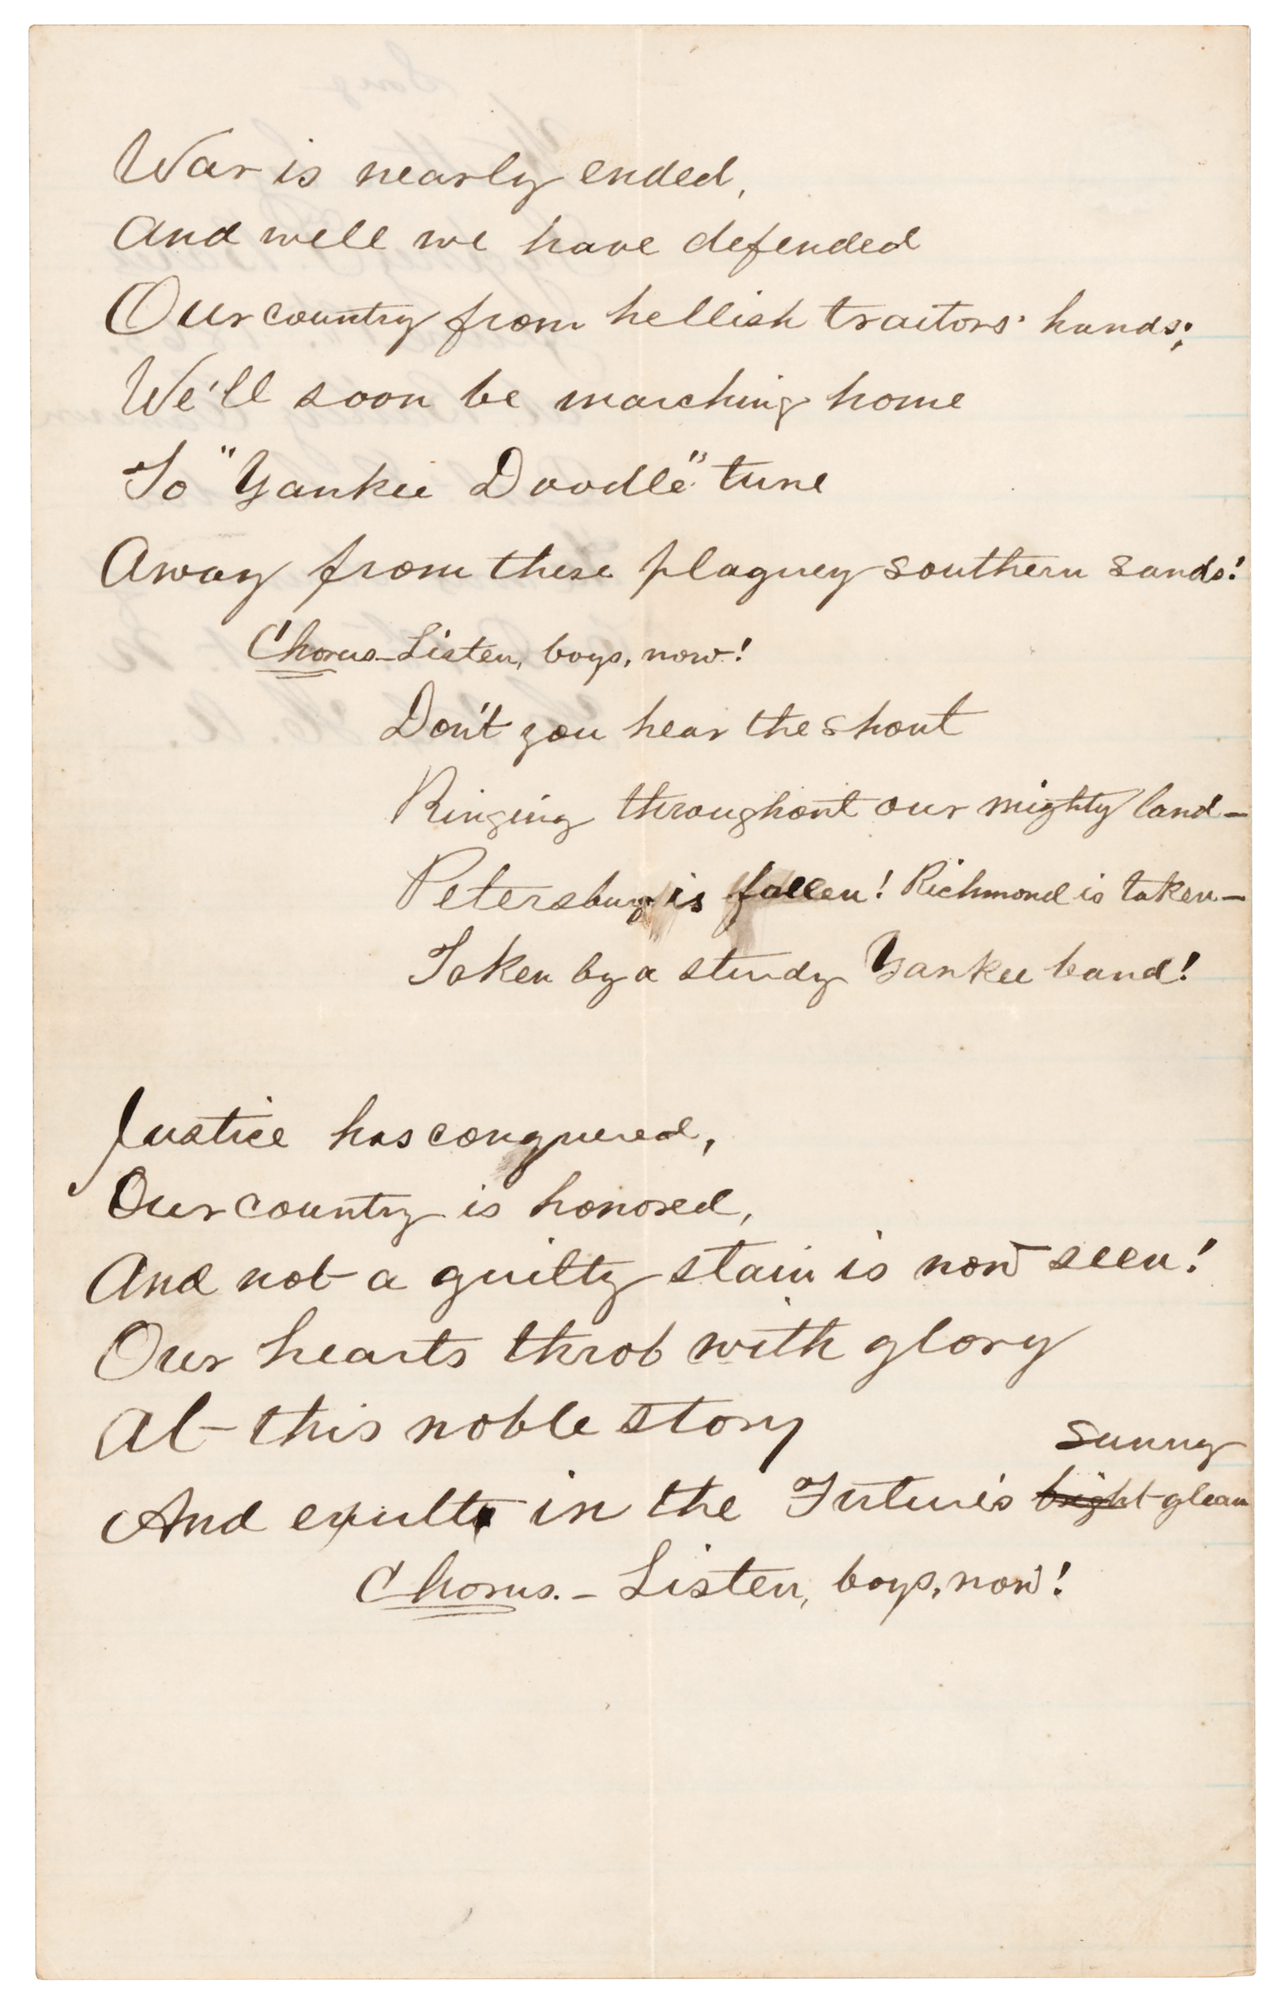 War is nearly ended,
And well we have defended
Our country from hellish traitors' hands;
We'll soon be marching home
To "Yankee Doodle" tune
Away from these plaguey southern sands!
Chorus – Listen, boys, now!
Don't you hear the shout
Ringing throughout our mighty land –
Petersburg is fallen! Richmond is taken –
Taken by a sturdy Yankee band!
Justice has conquered,
Our country is honored,
And not a guilty stain is now seen!
Our hearts throb with glory
At this noble story
sunny
And exults in the Future's bright gleam
Chorus. – Listen, boys, now!